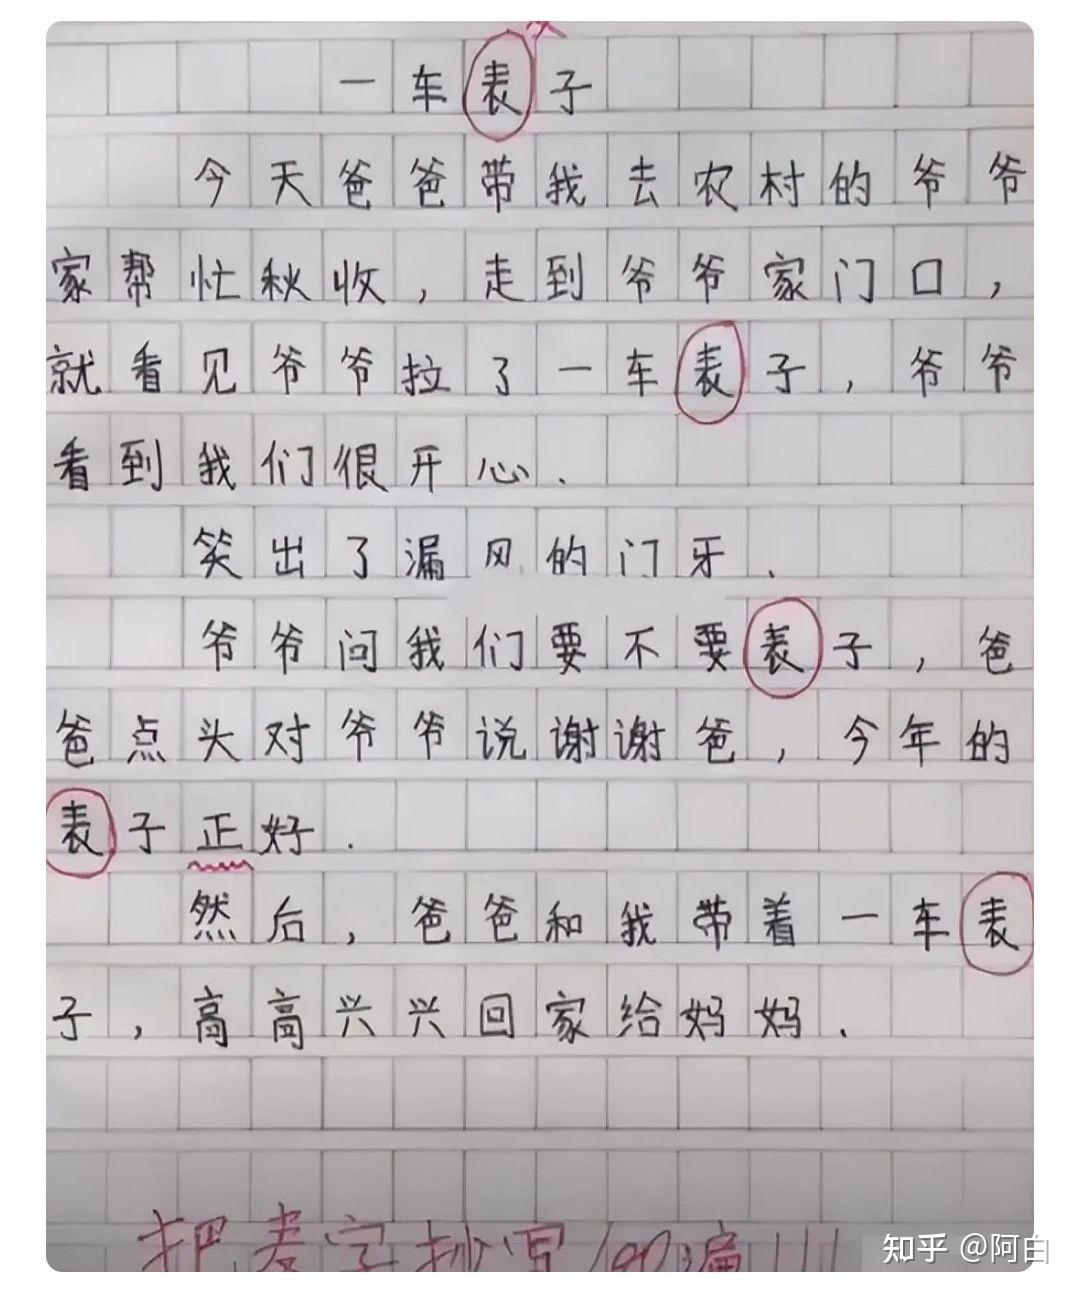 一车表子
今天爸爸带我去农村的爷爷
家帮忙秋收，走到爷爷家门口，
就看见爷爷拉了一车表子，爷爷
看到我们很开心.
笑出了漏风的门牙.
爷爷问我们要不要表子，爸
爸点头对爷爷说谢谢爸，今年的
表子正好.
然后，爸爸和我带着一车表
子，高高兴兴回家给妈妈.
把麦字抄写100遍!!!
知乎 @阿白